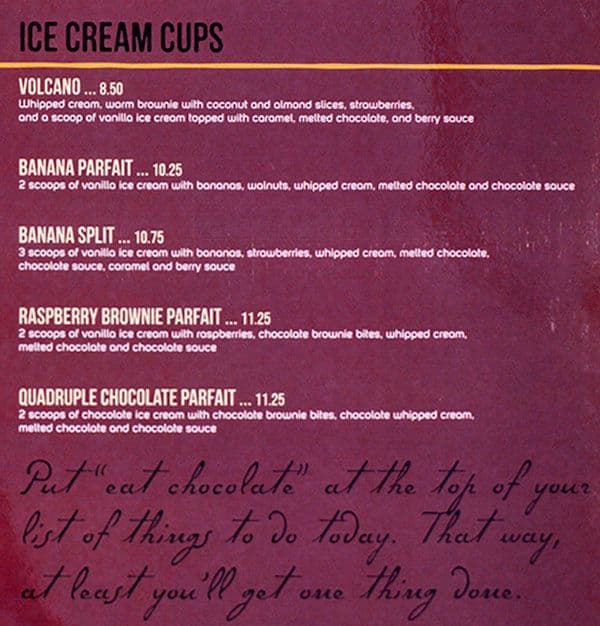 ICE CREAM CUPS
VOLCANO ... 8.50
Whipped cream, warm brownie with coconut and almond slices, strawberries,
and a scoop of vanilla ice cream topped with caramel, melted chocolate, and berry sauce
BANANA PARFAIT ... 10.25
2 scoops of vanilla ice cream with bananas, walnuts, whipped cream, melted chocolate and chocolate sauce
BANANA SPLIT ... 10.75
3 scoops of vanilla ice cream with bananas, strawberries, whipped cream, melted chocolate,
chocolate sauce, caramel and berry sauce
RASPBERRY BROWNIE PARFAIT ... 11.25
2 scoops of vanilla ice cream with raspberries, chocolate brownie bites, whipped cream,
melted chocolate and chocolate sauce
QUADRUPLE CHOCOLATE PARFAIT ... 11.25
2 scoops of chocolate ice cream with chocolate brownie bites, chocolate whipped cream,
melted chocolate and chocolate sauce
Put "eat chocolate" at the top of your
list of things to do today. That way,
at least you'll get one thing done.